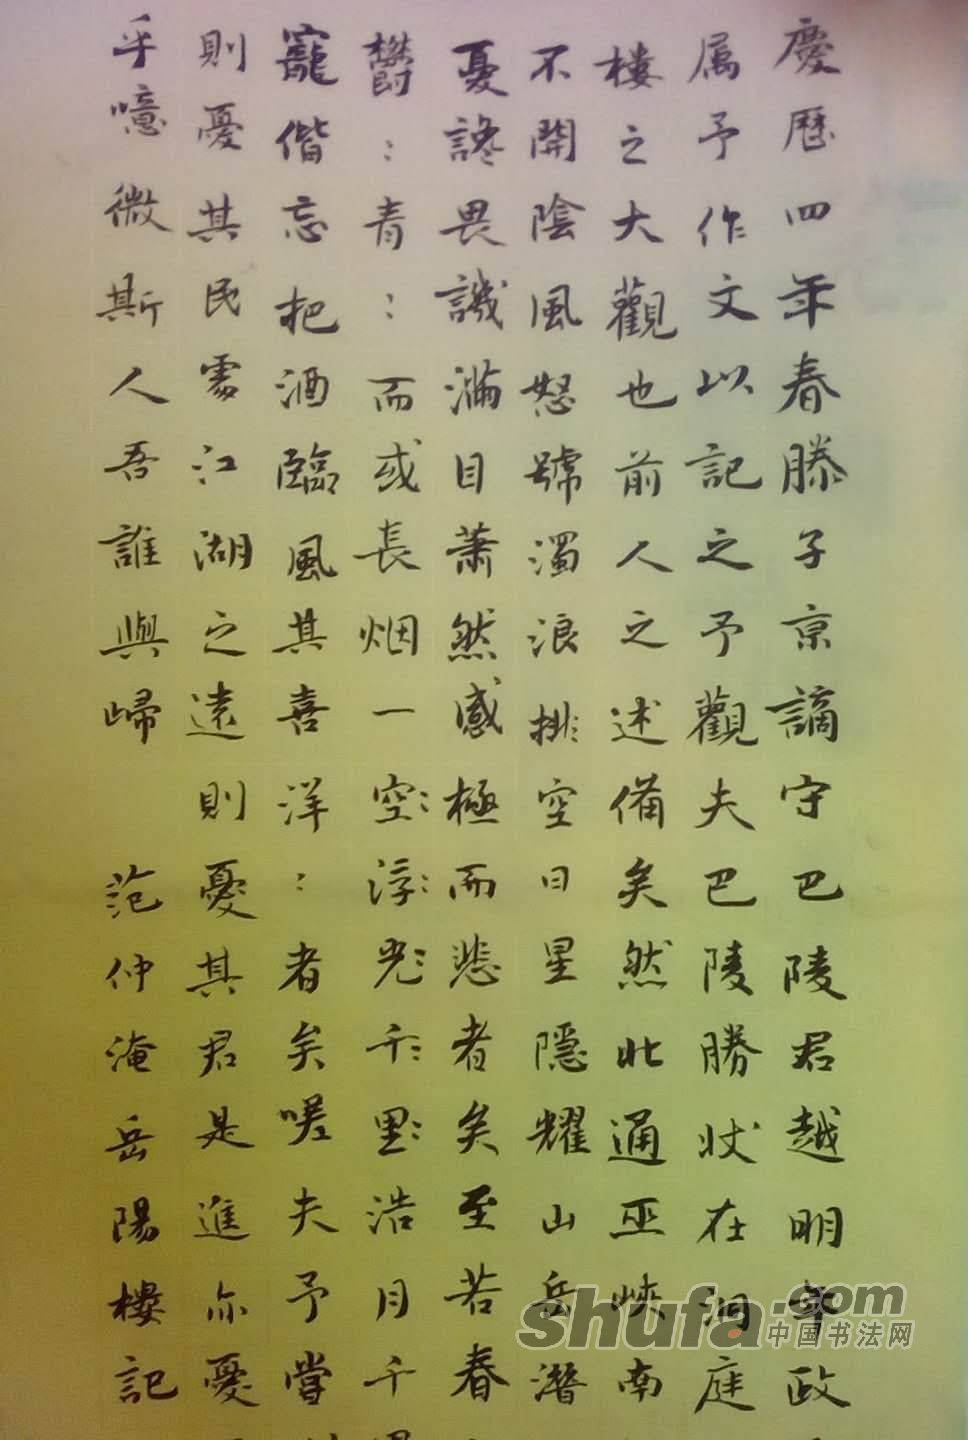 慶歷四年春滕子京謫守巴陵君越明年政
属予作文以記之予觀夫巴陵勝狀在洞庭
樓之大觀也前人之述備矣然北通巫峽南
不開陰風怒號濁浪排空日星隱耀山岳潛
憂讒畏譏滿目蕭然感極而悲者矣至若春
鬱:青:而或長烟一空:浮:光:千:里:浩月千
寵偕忘把酒臨風其喜洋:者矣嗟夫予嘗
則憂其民處江湖之遠則憂其君是進亦憂
乎噫微斯人吾誰與歸 范仲淹岳陽樓記
shufa.com
中国书法网